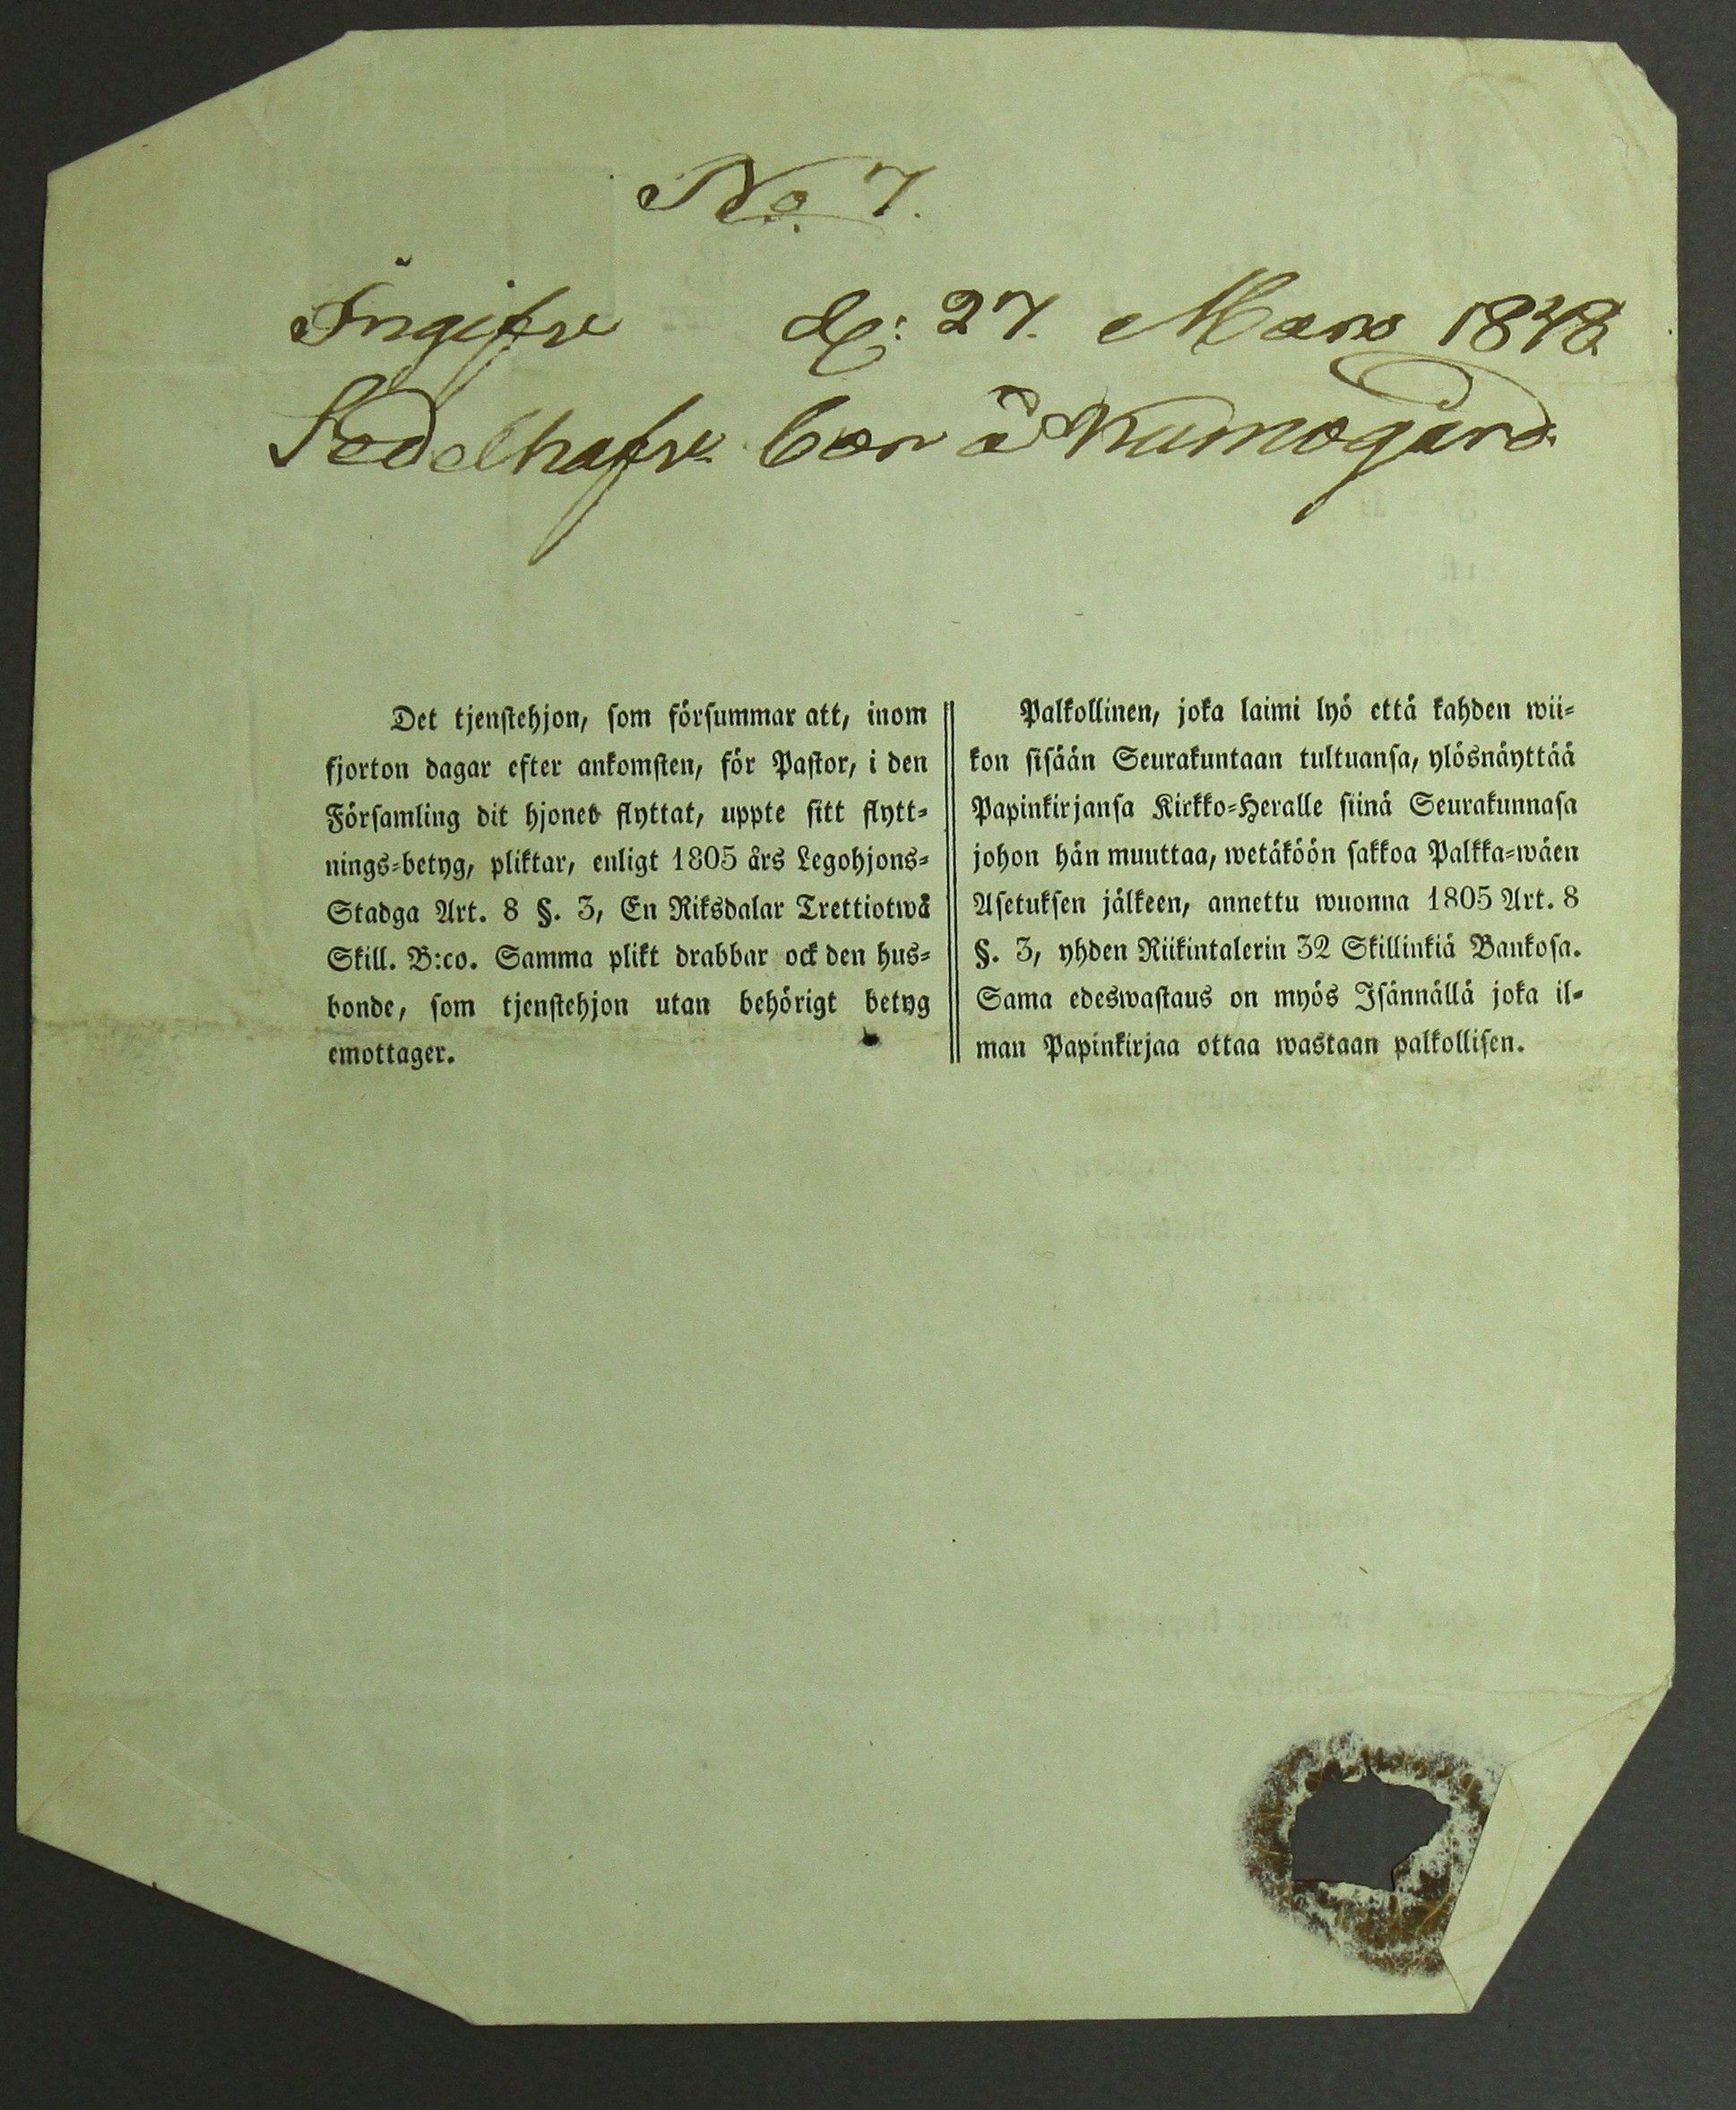 No. 7.
Ingifv d: 27. Mars 1848.
Sedelhafv. bor å Kumogård.
Det tjenstehjon, som försummar att, inom
fjorton dagar efter ankomsten, för Pastor, i den
Församling dit hjonet flyttat, uppte sitt flytt-
nings-betyg, pliktar, enligt 1805 års Legohjons-
Stadga Art. 8 §. 3, En Riksdalar Trettiotwå
Skill. B:co. Samma plikt drabbar ock den hus-
bonde, som tjenstehjon utan behörigt betyg
emottager.
Palkollinen, joka laimi lyö että kahden wii-
kon sisään Seurakuntaan tultuansa, ylösnäyttää
Papinkirjansa Kirkko-Heralle siinä Seurakunnasa
johon hän muuttaa, wetäköön sakkoa Palkka-wäen
Asetuksen jälkeen, annettu wuonna 1805 Art. 8
§. 3, yhden Riikintalerin 32 Skillinkiä Bankosa.
Sama edeswastaus on myös Isännällä joka il-
man Papinkirjaa ottaa wastaan palkollisen.